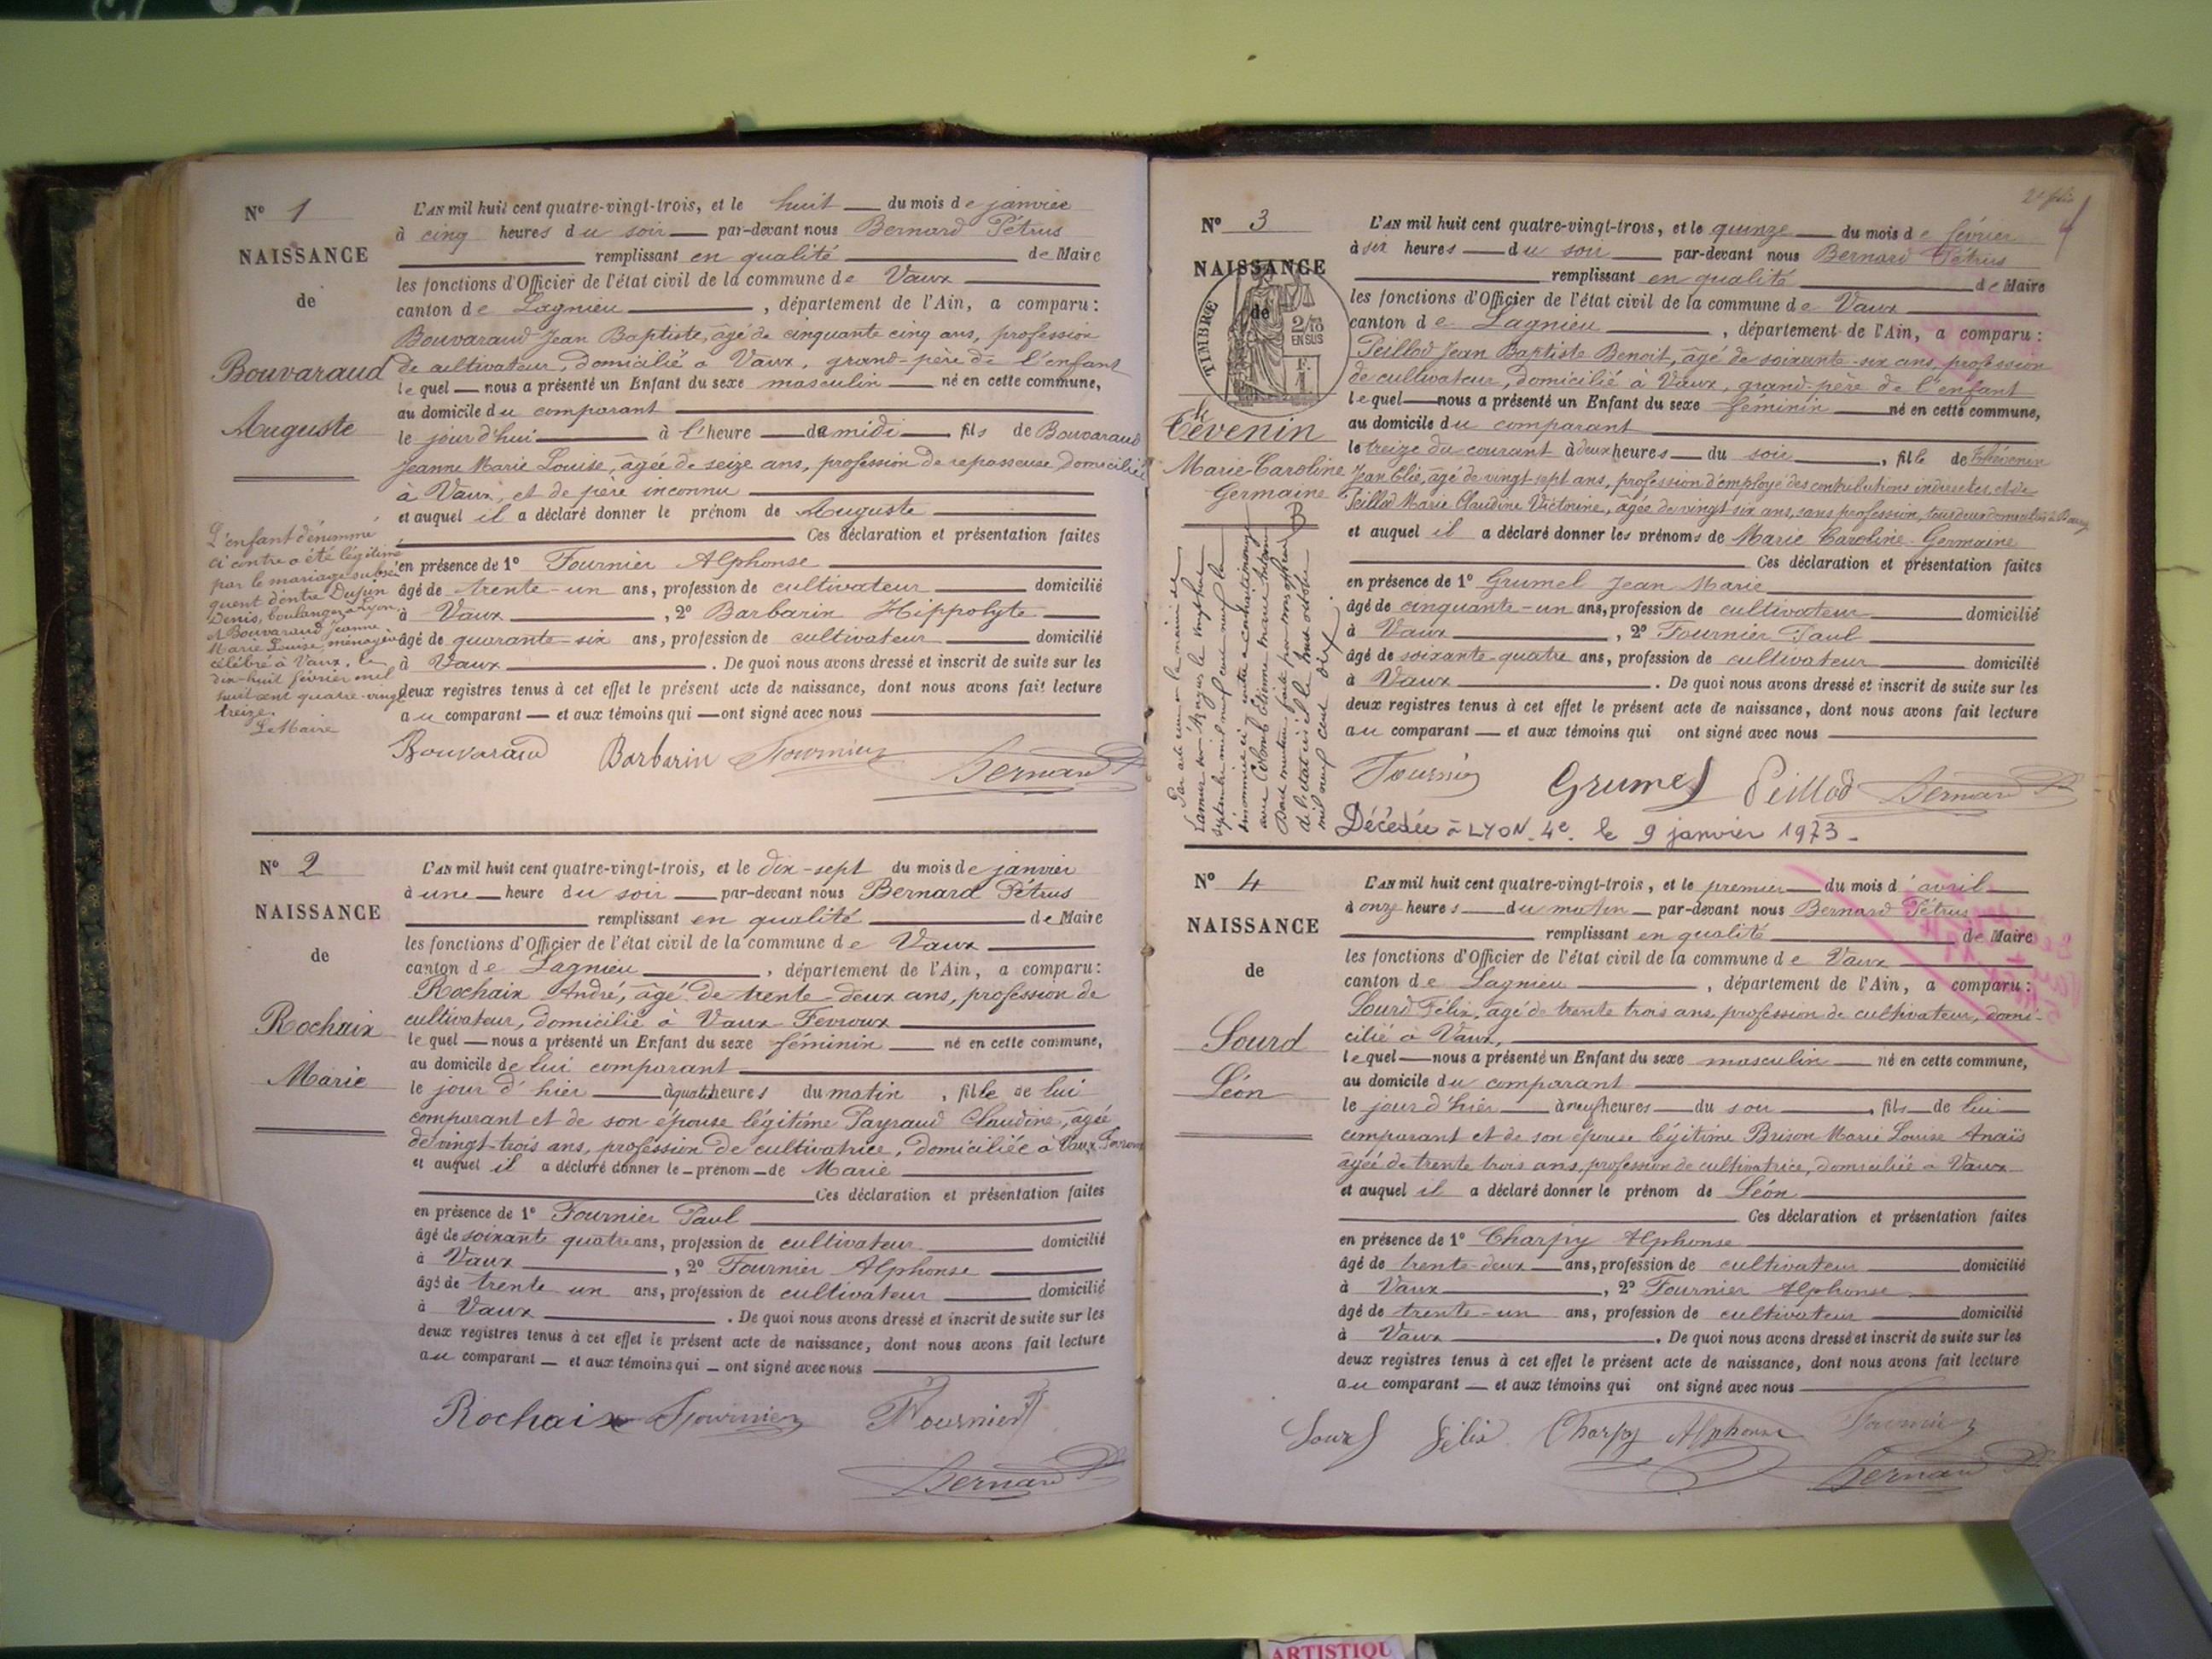 N° 1
NAISSANCE
de
Bouvaraud
Auguste
L'AN mil huit cent quatre-vingt-trois, et le huit du mois de janvier
à cinq heures du soir par-devant nous Bernard Pétrus
remplissant en qualité de Maire
les fonctions d'Officier de l'état civil de la commune de Vaux
canton de Lagnieu, département de l'Ain, a comparu:
Bouvaraud Jean Baptiste, âgé de cinquante cinq ans, profession
de cultivateur, domicilié à Vaux, grand-père de l'enfant
lequel nous a présenté un Enfant du sexe masculin né en cette commune,
au domicile du comparant
le jour d'hui à l'heure de midi fils de Bouvaraud
Jeanne Marie Louise, âgée de seize ans, profession de repasseuse domiciliée
à Vaux, et de père inconnu
et auquel il a déclaré donner le prénom de Auguste
Ces déclaration et présentation faites
en présence de 1° Fournier Alphonse
âgé de trente-un ans, profession de cultivateur domicilié
à Vaux, 2° Barbarin Hippolyte
âgé de quarante-six ans, profession de cultivateur domicilié
à Vaux. De quoi nous avons dressé et inscrit de suite sur les
deux registres tenus à cet effet le présent acte de naissance, dont nous avons fait lecture
au comparant et aux témoins qui ont signé avec nous
Bouvaraud Barbarin Fournier Bernard
L'enfant dénommé
ci contre a été légitimé
par le mariage subsé
quent d'entre Dufun
Denis, boulanger à Lyon
et Bouvaraud Jeanne
Marie Louise, ménagère
célébré à Vaux, le
dix-huit février mil
huit cent quatre-vingt
treize.
Le Maire
N° 2
NAISSANCE
de
Rochaix
Marie
L'AN mil huit cent quatre-vingt-trois, et le dix-sept du mois de janvier
à une heure du soir par-devant nous Bernard Pétrus
remplissant en qualité de Maire
les fonctions d'Officier de l'état civil de la commune de Vaux
canton de Lagnieu, département de l'Ain, a comparu:
Rochaix André, âgé de trente-deux ans, profession de
cultivateur, domicilié à Vaux-Fevroux
lequel nous a présenté un Enfant du sexe féminin né en cette commune,
au domicile de lui comparant
le jour d'hier à quatre heures du matin, fille de lui
comparant et de son épouse légitime Payraud Claudine, âgée
de vingt-trois ans, profession de cultivatrice, domiciliée à Vaux Fevroux
et auquel il a déclaré donner le prénom de Marie
Ces déclaration et présentation faites
en présence de 1° Fournier Paul
âgé de soixante quatre ans, profession de cultivateur domicilié
à Vaux, 2° Fournier Alphonse
âgé de trente un ans, profession de cultivateur domicilié
à Vaux. De quoi nous avons dressé et inscrit de suite sur les
deux registres tenus à cet effet le présent acte de naissance, dont nous avons fait lecture
au comparant et aux témoins qui ont signé avec nous
Rochaix Fournier Fournier
Bernard
N° 3
NAISSANCE
de
TIMBRE
2/10
EN SUS
F.
1
Tévenin
Marie-Caroline
Germaine
L'AN mil huit cent quatre-vingt-trois, et le quinze du mois de février
à six heures du soir par-devant nous Bernard Pétrus
remplissant en qualité de Maire
les fonctions d'Officier de l'état civil de la commune de Vaux
canton de Lagnieu, département de l'Ain, a comparu:
Peillod Jean Baptiste Benoit, âgé de soixante-six ans, profession
de cultivateur, domicilié à Vaux, grand-père de l'enfant
lequel nous a présenté un Enfant du sexe féminin né en cette commune,
au domicile du comparant
le treize du courant à deux heures du soir, fille de Thévenin
Jean Elie, âgé de vingt sept ans, profession d'employé des contributions indirectes, et de
Peillod Marie Claudine Victorine, âgée de vingt six ans, sans profession, tous deux domiciliés à
et auquel il a déclaré donner les prénoms de Marie Caroline-Germaine
Ces déclaration et présentation faites
en présence de 1° Grumel Jean Marie
âgé de cinquante-un ans, profession de cultivateur domicilié
à Vaux, 2° Fournier Paul
âgé de soixante-quatre ans, profession de cultivateur domicilié
à Vaux. De quoi nous avons dressé et inscrit de suite sur les
deux registres tenus à cet effet le présent acte de naissance, dont nous avons fait lecture
au comparant et aux témoins qui ont signé avec nous
Fournier Grumel Peillod Bernard
Décédée à LYON. 4e. le 9 janvier 1973
N° 4
NAISSANCE
de
Sourd
Léon
L'AN mil huit cent quatre-vingt-trois, et le premier du mois d'avril
à onze heures du matin par-devant nous Bernard Pétrus
remplissant en qualité de Maire
les fonctions d'Officier de l'état civil de la commune de Vaux
canton de Lagnieu, département de l'Ain, a comparu:
Sourd Félix, âgé de trente trois ans, profession de cultivateur, domi-
cilié à Vaux,
lequel nous a présenté un Enfant du sexe masculin né en cette commune,
au domicile du comparant
le jour d'hier à neuf heures du soir, fils de lui
comparant et de son épouse légitime Brison Marie Louise Anaïs
âgée de trente trois ans, profession de cultivatrice, domiciliée à Vaux
et auquel il a déclaré donner le prénom de Léon
Ces déclaration et présentation faites
en présence de 1° Charpy Alphonse
âgé de trente-deux ans, profession de cultivateur domicilié
à Vaux, 2° Fournier Alphonse
âgé de trente-un ans, profession de cultivateur domicilié
à Vaux. De quoi nous avons dressé et inscrit de suite sur les
deux registres tenus à cet effet le présent acte de naissance, dont nous avons fait lecture
au comparant et aux témoins qui ont signé avec nous
Sourd Félix Charpy Alphonse Fournier
Bernard
ARTISTIQU